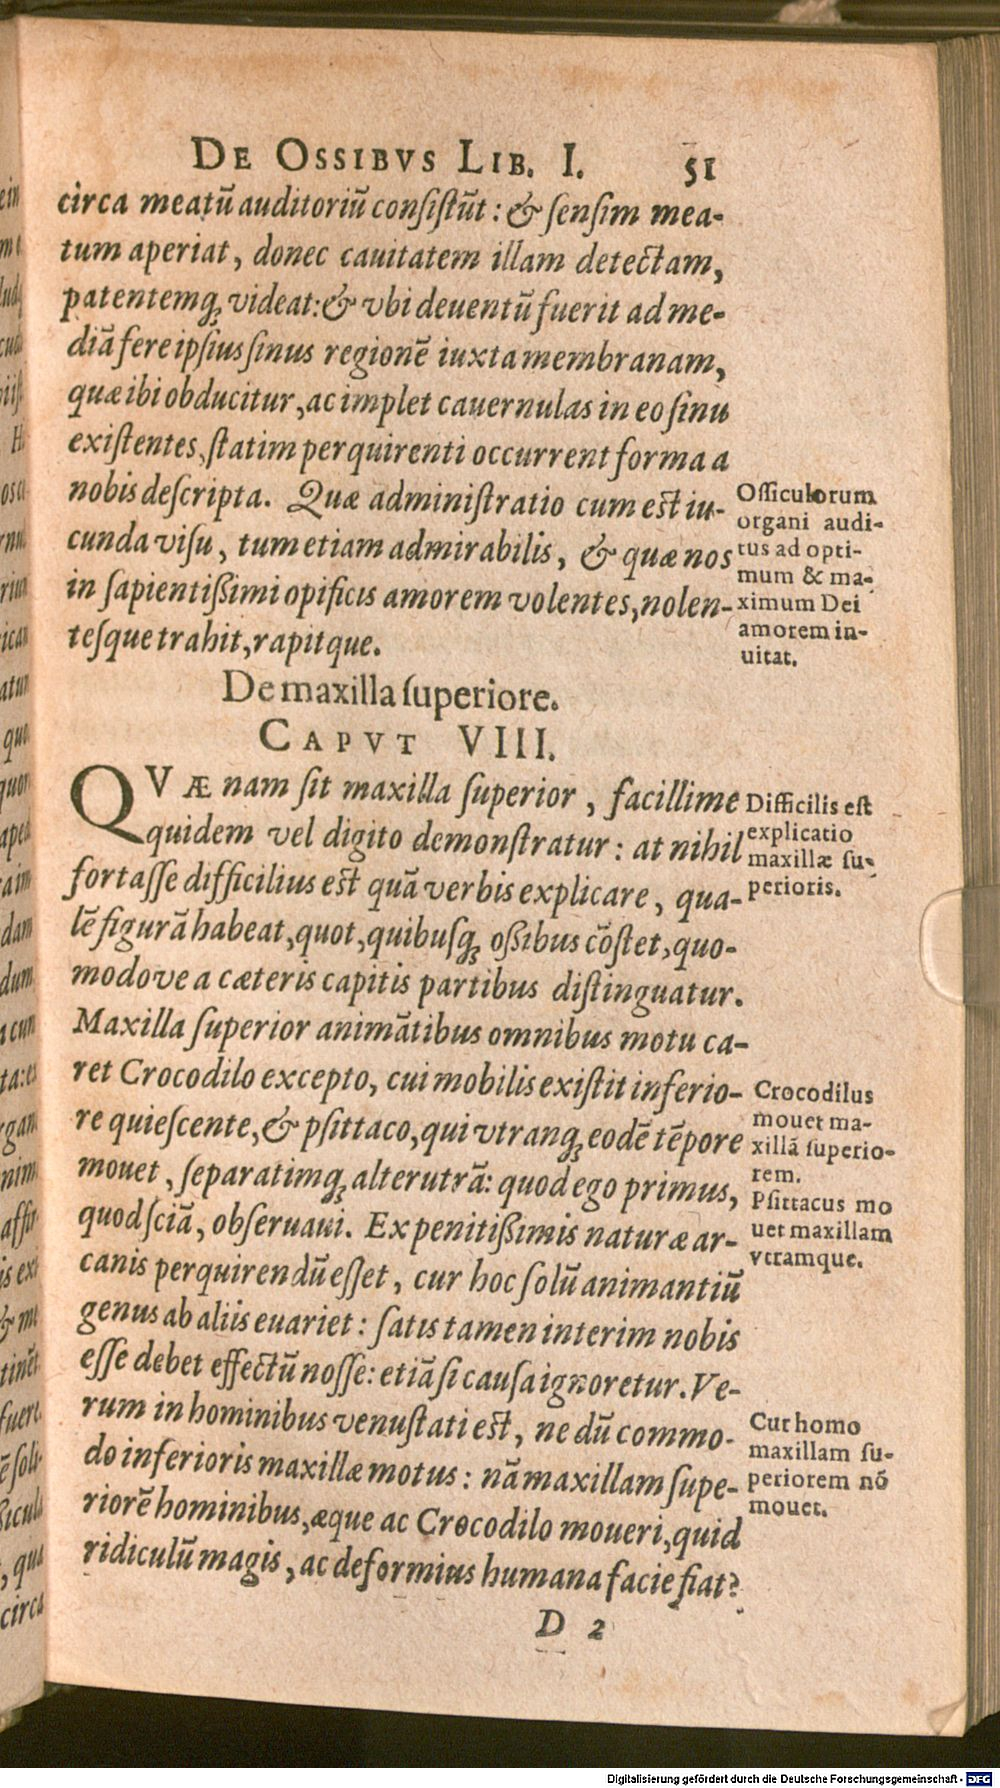 DE OSSIBVS LIB. I. 51
circa meatũ auditoriũ consistũt: & sensim mea-
tum aperiat, donec cauitatem illam detectam,
patentemq́ꝫ videat: & vbi deuentũ fuerit ad me-
diã fere ipsius sinus regionẽ iuxta membranam,
quæ ibi obducitur, ac implet cauernulas in eo sinu
existentes, statim perquirenti occurrent forma a
nobis descripta. Quæ administratio cum est iu-
cunda visu, tum etiam admirabilis, & quæ nos
in sapientißimi opificis amorem volentes, nolen-
tesque trahit, rapitque.
Ossiculorum
organi audi-
tus ad opti-
mum & ma-
ximum Dei
amorem in-
uitat.
De maxilla superiore.
CAPVT VIII.
QVÆ nam sit maxilla superior, facillime
quidem vel digito demonstratur: at nihil
fortasse difficilius est quã verbis explicare, qua-
lẽ figurã habeat, quot, quibusqꝫ oßibus cõstet, quo-
modo ve a cæteris capitis partibus distinguatur.
Difficilis est
explicatio
maxillæ su-
perioris.
Maxilla superior animãtibus omnibus motu ca-
ret Crocodilo excepto, cui mobilis existit inferio-
re quiescente, & psittaco, qui vtranqꝫ eodẽ tẽpore
mouet, separatimqꝫ alterutrã: quod ego primus,
quod sciã, obseruaui. Ex penitißimis naturæ ar-
canis perquirendũ esset, cur hoc solũ animantiũ
genus ab aliis euariet: satis tamen interim nobis
esse debet effectũ nosse: etiã si causa ignoretur. Ve-
rum in hominibus venustati est, ne dũ commo-
do inferioris maxillæ motus: nã maxillam supe-
riorẽ hominibus, æque ac Crocodilo moueri, quid
ridiculũ magis, ac deformius humana facie fiat?
Crocodilus
mouet ma-
xillã superio-
rem.
Psittacus mo
uet maxillam
vtramque.
Cur homo
maxillam su-
periorem nõ
mouet.
D 2
Digitalisierung gefördert durch die Deutsche Forschungsgemeinschaft - DFG